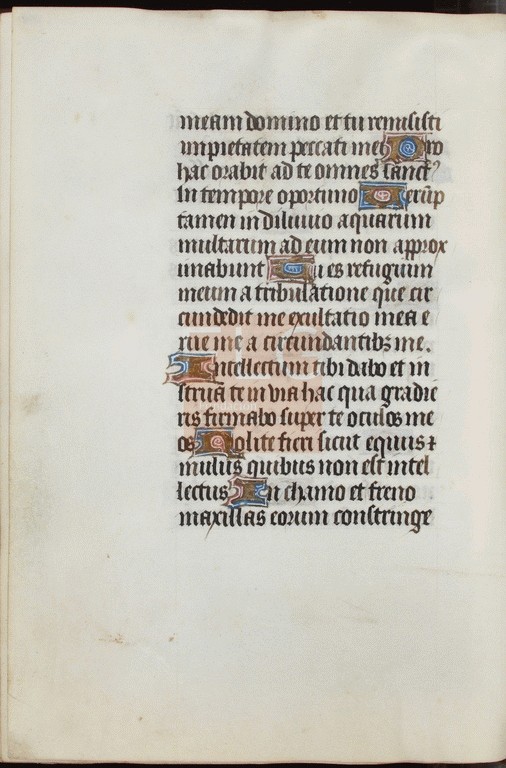 meam domino et tu remisisti
impietatem peccati mei Pro
hac orabit ad te omnes sanct9
In tempore oportuno Verūp
tamen in diluuio aquarum
multarum ad eum non approx
imabunt Tu es refugium
meum a tribulatione que cir
cundedit me exultatio mea e
rue me a circundantibs me.
Intellectum tibi dabo et in
struā te in via hac qua gradie
ris firmabo super te oculos me
os Nolite fieri sicut equus ⁊
mulus quibus non est intel
lectus In chamo et freno
maxillas eorum constringe